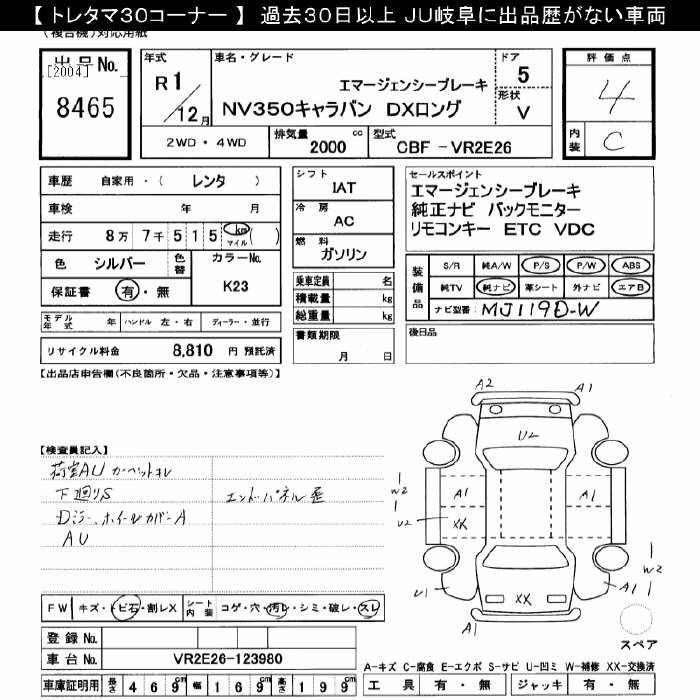 【 トレタマ30コーナー 】 過去30日以上 JU岐阜に出品歴がない車両
(複合機)対応用紙
出品No.
[2004]
8465
年式 R1/12月
車名・グレード
エマージェンシーブレーキ
NV350キャラバン DXロング
ドア 5
形状 V
2WD・4WD
排気量 2000 cc
型式 CBF-VR2E26
評価点 4
内装 C
車歴 自家用・( レンタ )
車検 年 月
走行 8万 7千 5 1 5 km マイル ( )
色 シルバー 色替 カラーNo. K23
保証書 有・無
モデル年式 年 ハンドル 左・右 ディーラー・並行
リサイクル料金 8,810 円 預託済
シフト IAT
冷房 AC
燃料 ガソリン
乗車定員 名
積載量 kg
総重量 kg
書類期限 月 日
セールスポイント
エマージェンシーブレーキ
純正ナビ バックモニター
リモコンキー ETC VDC
装備品
S/R 純A/W P/S P/W ABS
純TV 純ナビ 革シート 外ナビ エアB
ナビ型番 MJ119D-W
後日品
【出品店申告欄(不良箇所・欠品・注意事項等)】
【検査員記入】
荷室AU カーペットキレ
下廻りS
Dミラー、ホイールカバーA
AU
エンドパネル歪
FW キズ・トビ石・割レX シート内装 コゲ・穴・汚レ・シミ・破レ・スレ
登録No.
車台No. VR2E26-123980
車庫証明用 長さ 469cm 幅 169cm 高さ 199cm
A2
A1
U2
W2
A1
A1
U2
XX
W2
U1
XX
A1
A1
スペア
A-キズ C-腐食 E-エクボ S-サビ U-凹ミ W-補修 XX-交換済
工具 有・無 ジャッキ 有・無